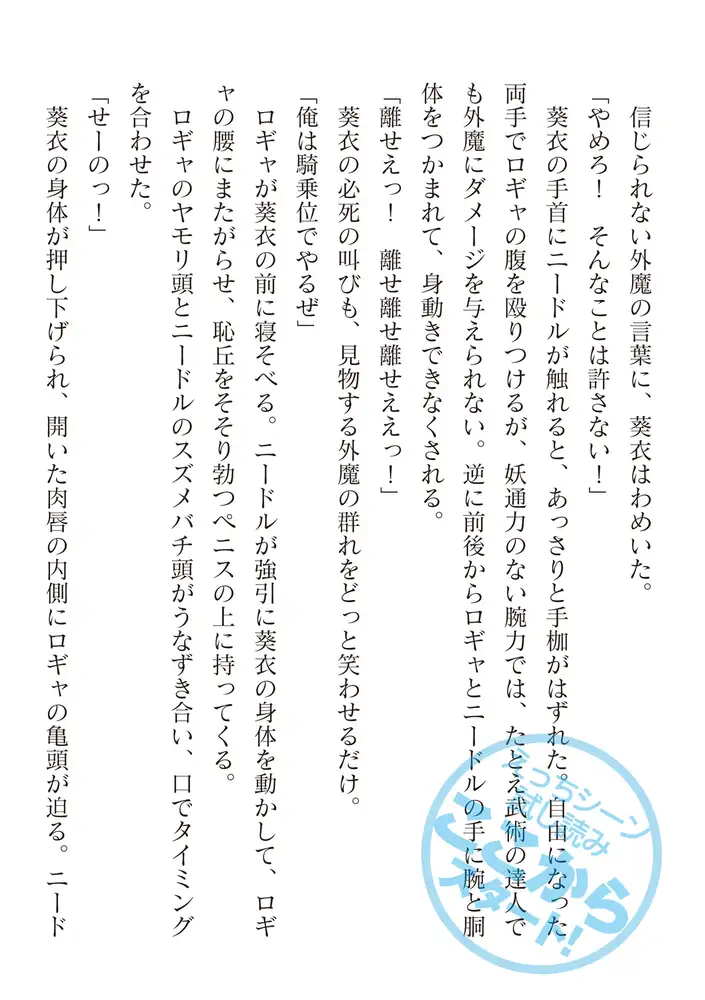 信じられない外魔の言葉に、葵衣はわめいた。
「やめろ！　そんなことは許さない！」
葵衣の手首にニードルが触れると、あっさりと手枷がはずれた。自由になった
両手でロギャの腹を殴りつけるが、妖通力のない腕力では、たとえ武術の達人で
も外魔にダメージを与えられない。逆に前後からロギャとニードルの手に腕と胴
体をつかまれて、身動きできなくされる。
「離せえっ！　離せ離せ離せええっ！」
葵衣の必死の叫びも、見物する外魔の群れをどっと笑わせるだけ。
「俺は騎乗位でやるぜ」
ロギャが葵衣の前に寝そべる。ニードルが強引に葵衣の身体を動かして、ロギ
ャの腰にまたがらせ、恥丘をそそり勃つペニスの上に持ってくる。
ロギャのヤモリ頭とニードルのスズメバチ頭がうなずき合い、口でタイミング
を合わせた。
「せーのっ！」
葵衣の身体が押し下げられ、開いた肉唇の内側にロギャの亀頭が迫る。ニード
えっちシーン
試し読み
ここから
スタート！